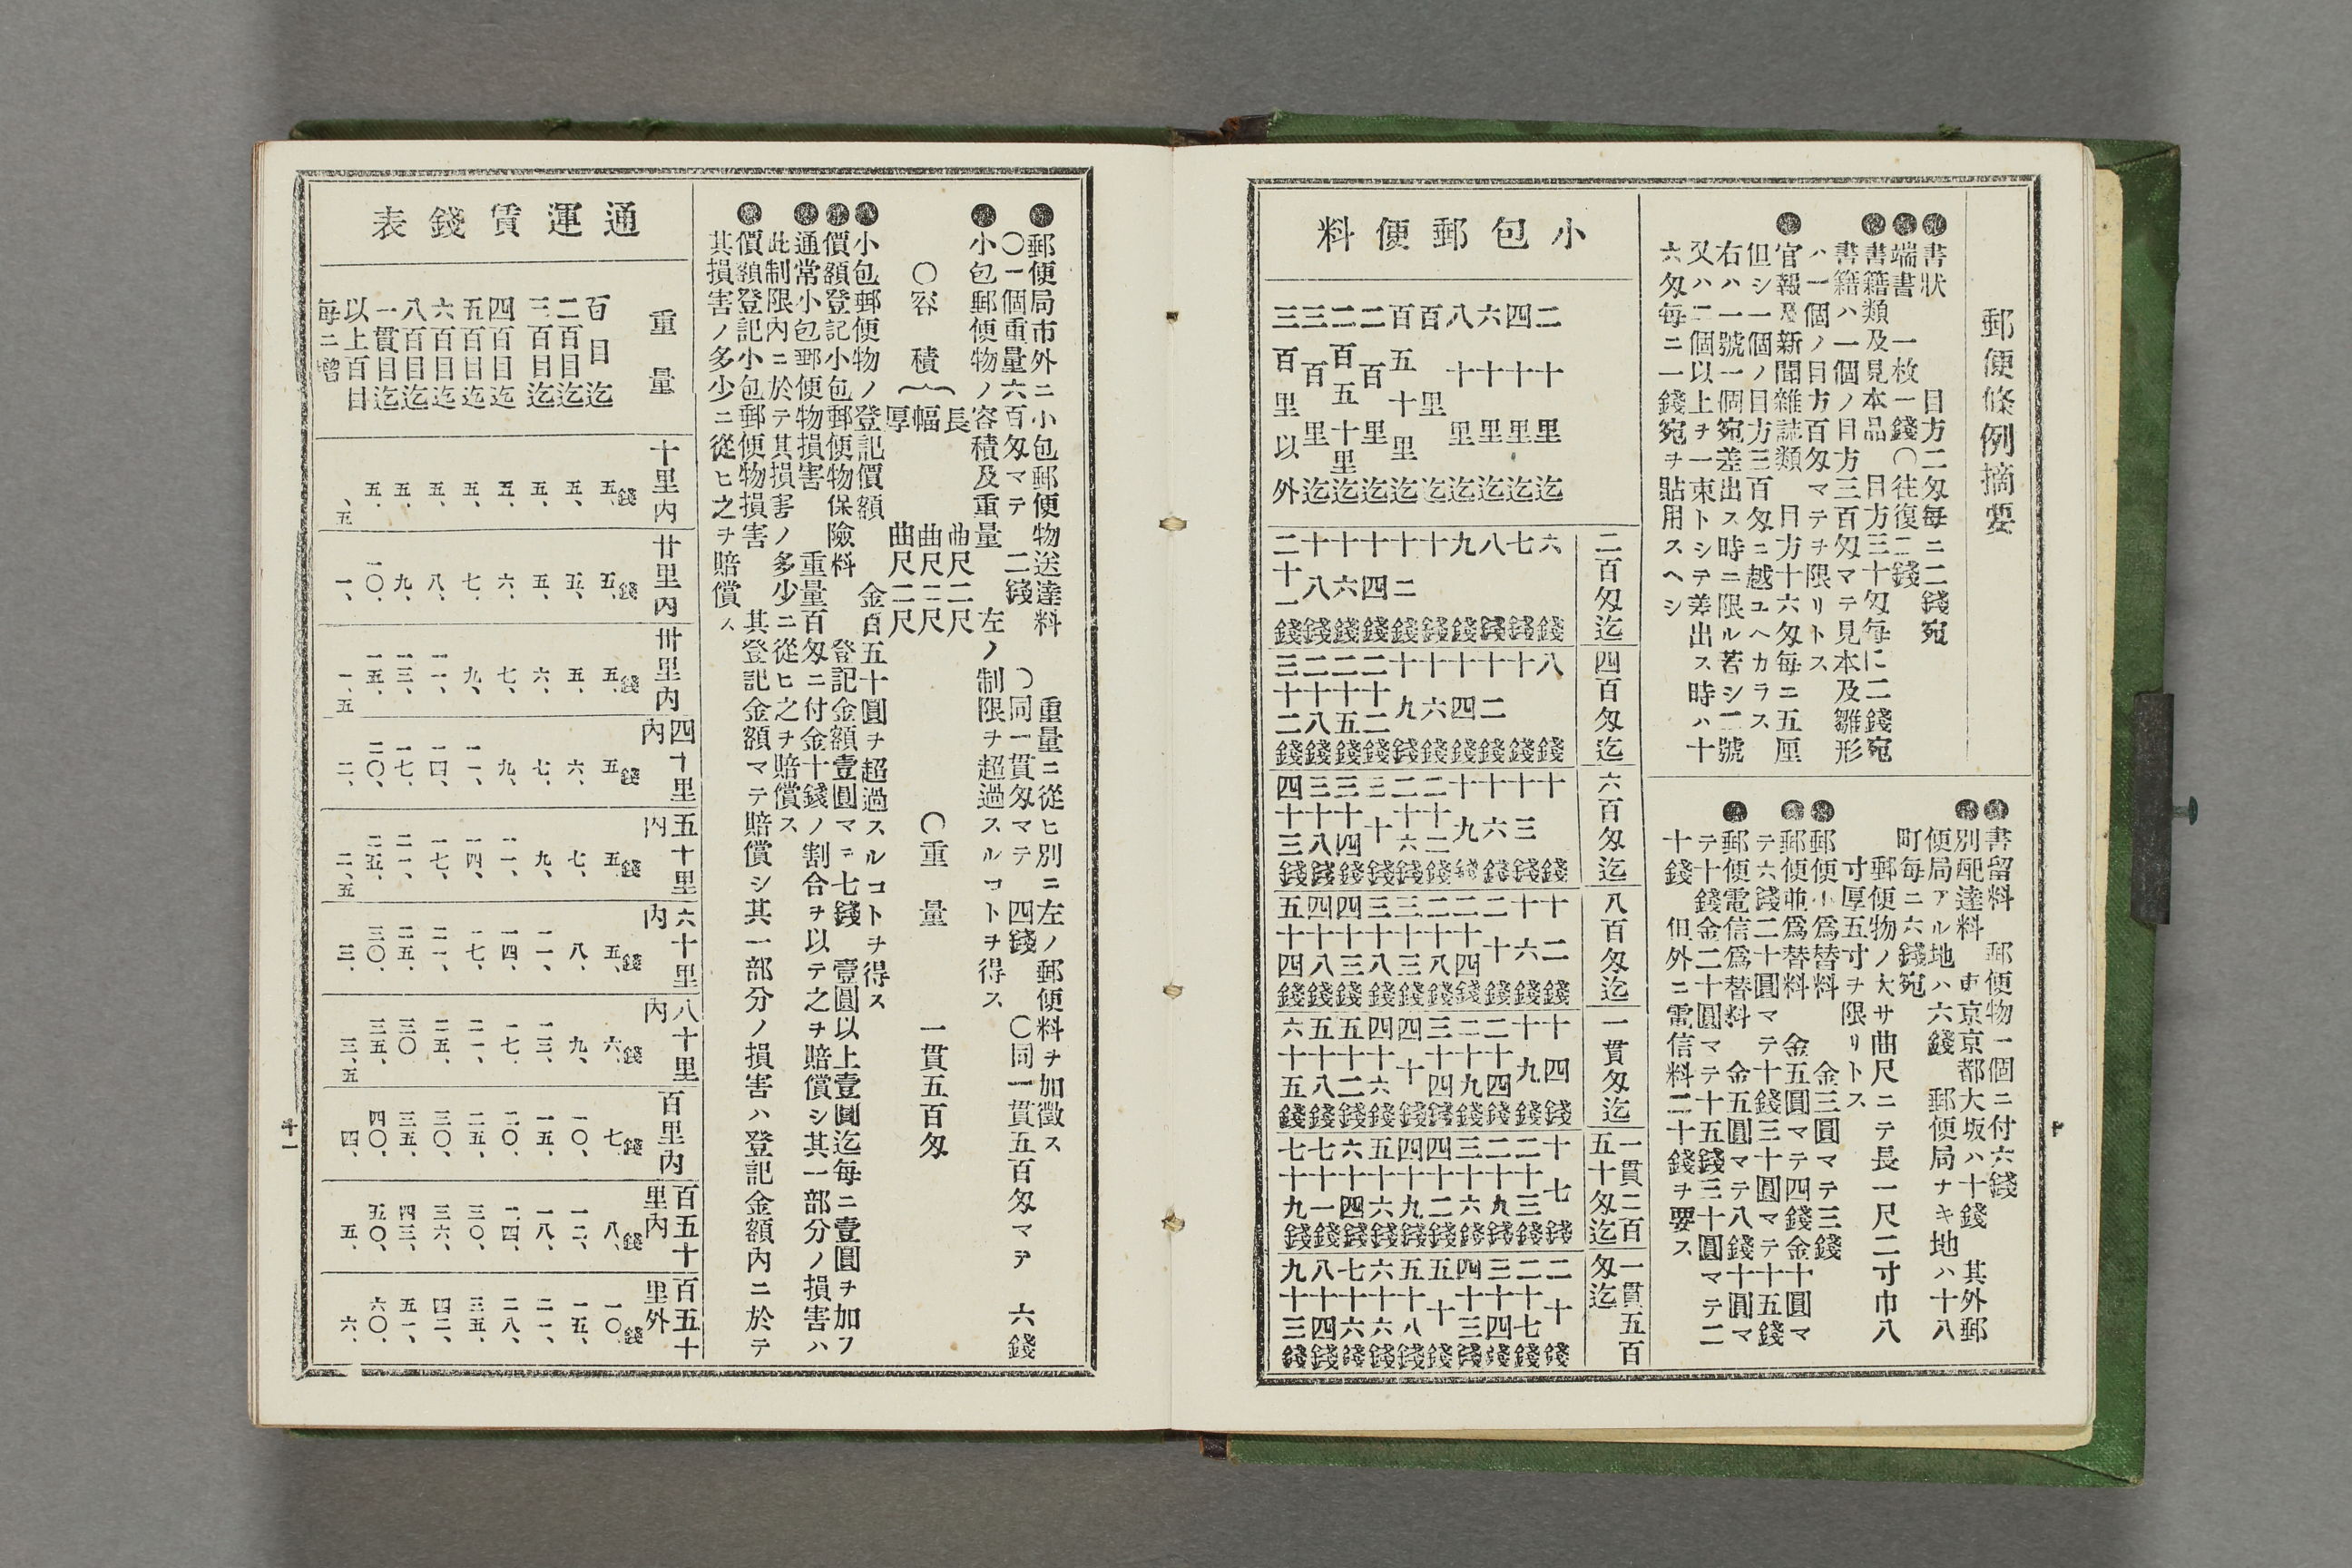 郵便條例摘要
書狀　目方二匁每ニ二錢宛
端書　一枚一錢〇往復二錢
書籍類及見本品　目方三十匁每に二錢宛
書籍ハ一個ノ目方三百匁マテ見本及雛形
ハ一個ノ目方百匁マテヲ限リトス
官報及新聞雜誌類　目方十六匁每ニ五厘
但シ一個ノ目方三百匁ニ越ユヘカラス
右ハ一號一個宛差出ス時ニ限ル若シ二號
又ハ二個以上ヲ一束トシテ差出ス時ハ十
六匁每ニ一錢宛ヲ貼用スヘシ
書留料　郵便物一個ニ付六錢
別配達料　東京京都大坂ハ十錢　其外郵
便局アル地ハ六錢　郵便局ナキ地ハ十八
町每ニ六錢宛
郵便物ノ大サ曲尺ニテ長一尺二寸巾八
寸厚五寸ヲ限リトス
郵便小爲替料　金三圓マテ三錢
郵便並爲替料　金五圓マテ四錢金十圓マ
テ六錢二十圓マテ十錢三十圓マテ十五錢
郵便電信爲替料　金五圓マテ八錢十圓マ
テ十錢金二十圓マテ十五錢三十圓マテ二
十錢　但外ニ電信料二十錢ヲ要ス
小包郵便料
二百匁迄　四百匁迄　六百匁迄　八百匁迄　一貫匁迄　一貫二百五十匁迄　一貫五百匁迄
二十里迄　六錢　八錢　十錢　十二錢　十四錢　十七錢　二十錢
四十里迄　七錢　十錢　十三錢　十六錢　十九錢　二十三錢　二十七錢
六十里迄　八錢　十二錢　十六錢　二十錢　二十四錢　二十九錢　三十四錢
八十里迄　九錢　十四錢　十九錢　二十四錢　二十九錢　三十六錢　四十三錢
百里迄　十錢　十六錢　二十二錢　二十八錢　三十四錢　四十二錢　五十錢
百五十里迄　十二錢　十九錢　二十六錢　三十三錢　四十錢　四十九錢　五十八錢
二百里迄　十四錢　二十二錢　三十錢　三十八錢　四十六錢　五十六錢　六十六錢
二百五十里迄　十六錢　二十五錢　三十四錢　四十三錢　五十二錢　六十四錢　七十六錢
三百里迄　十八錢　二十八錢　三十八錢　四十八錢　五十八錢　七十一錢　八十四錢
三百里以外　二十一錢　三十二錢　四十三錢　五十四錢　六十五錢　七十九錢　九十三錢
十
郵便局市外ニ小包郵便物送達料　重量ニ從ヒ別ニ左ノ郵便料ヲ加徵ス
〇一個重量六百匁マテ　二錢　〇同一貫匁マテ　四錢　〇同一貫五百匁マテ　六錢
小包郵便物ノ容積及重量　左ノ制限ヲ超過スルコトヲ得ス
長　曲尺二尺
〇容積　幅　曲尺二尺　〇重量　一貫五百匁
厚　曲尺二尺
小包郵便物ノ登記價額　金百五十圓ヲ超過スルコトヲ得ス
價額登記小包郵便物保險料　登記金額壹圓マテ七錢　壹圓以上壹圓迄每ニ壹圓ヲ加フ
通常小包郵便物損害　重量百匁ニ付金十錢ノ割合ヲ以テ之ヲ賠償シ其一部分ノ損害ハ
此制限內ニ於テ其損害ノ多少ニ從ヒ之ヲ賠償ス
價額登記小包郵便物損害　其登記金額マテ賠償シ其一部分ノ損害ハ登記金額內ニ於テ
其損害ノ多少ニ從ヒ之ヲ賠償ス
通運賃錢表
重量　十里內　廿里內　卅里內　四十里內　五十里內　六十里內　八十里內　百里內　百五十里內　百五十里外
百目迄　五、錢　五、錢　五、錢　五、錢　五、錢　五、錢　六、錢　七、錢　八、錢　一〇、錢
二百目迄　五、　五、　五、　六、　七、　八、　九、　一〇、　一二、　一五、
三百目迄　五、　五、　六、　七、　九、　一一、　一三、　一五、　一八、　二一、
四百目迄　五、　六、　七、　九、　一一、　一四、　一七、　二〇、　二四、　二八、
五百目迄　五、　七、　九、　一一、　一四、　一七、　二一、　二五、　三〇、　三五、
六百目迄　五、　八、　一一、　一四、　一七、　二一、　二五、　三〇、　三六、　四二、
八百目迄　五、　九、　一三、　一七、　二一、　二五、　三〇　三五、　四三、　五一、
一貫目迄　五、　一〇、　一五、　二〇、　二五、　三〇、　三五、　四〇、　五〇、　六〇、
以上百目每ニ增　、五　一、　一、五　二、　二、五　三、　三、五　四、　五、　六、
十一